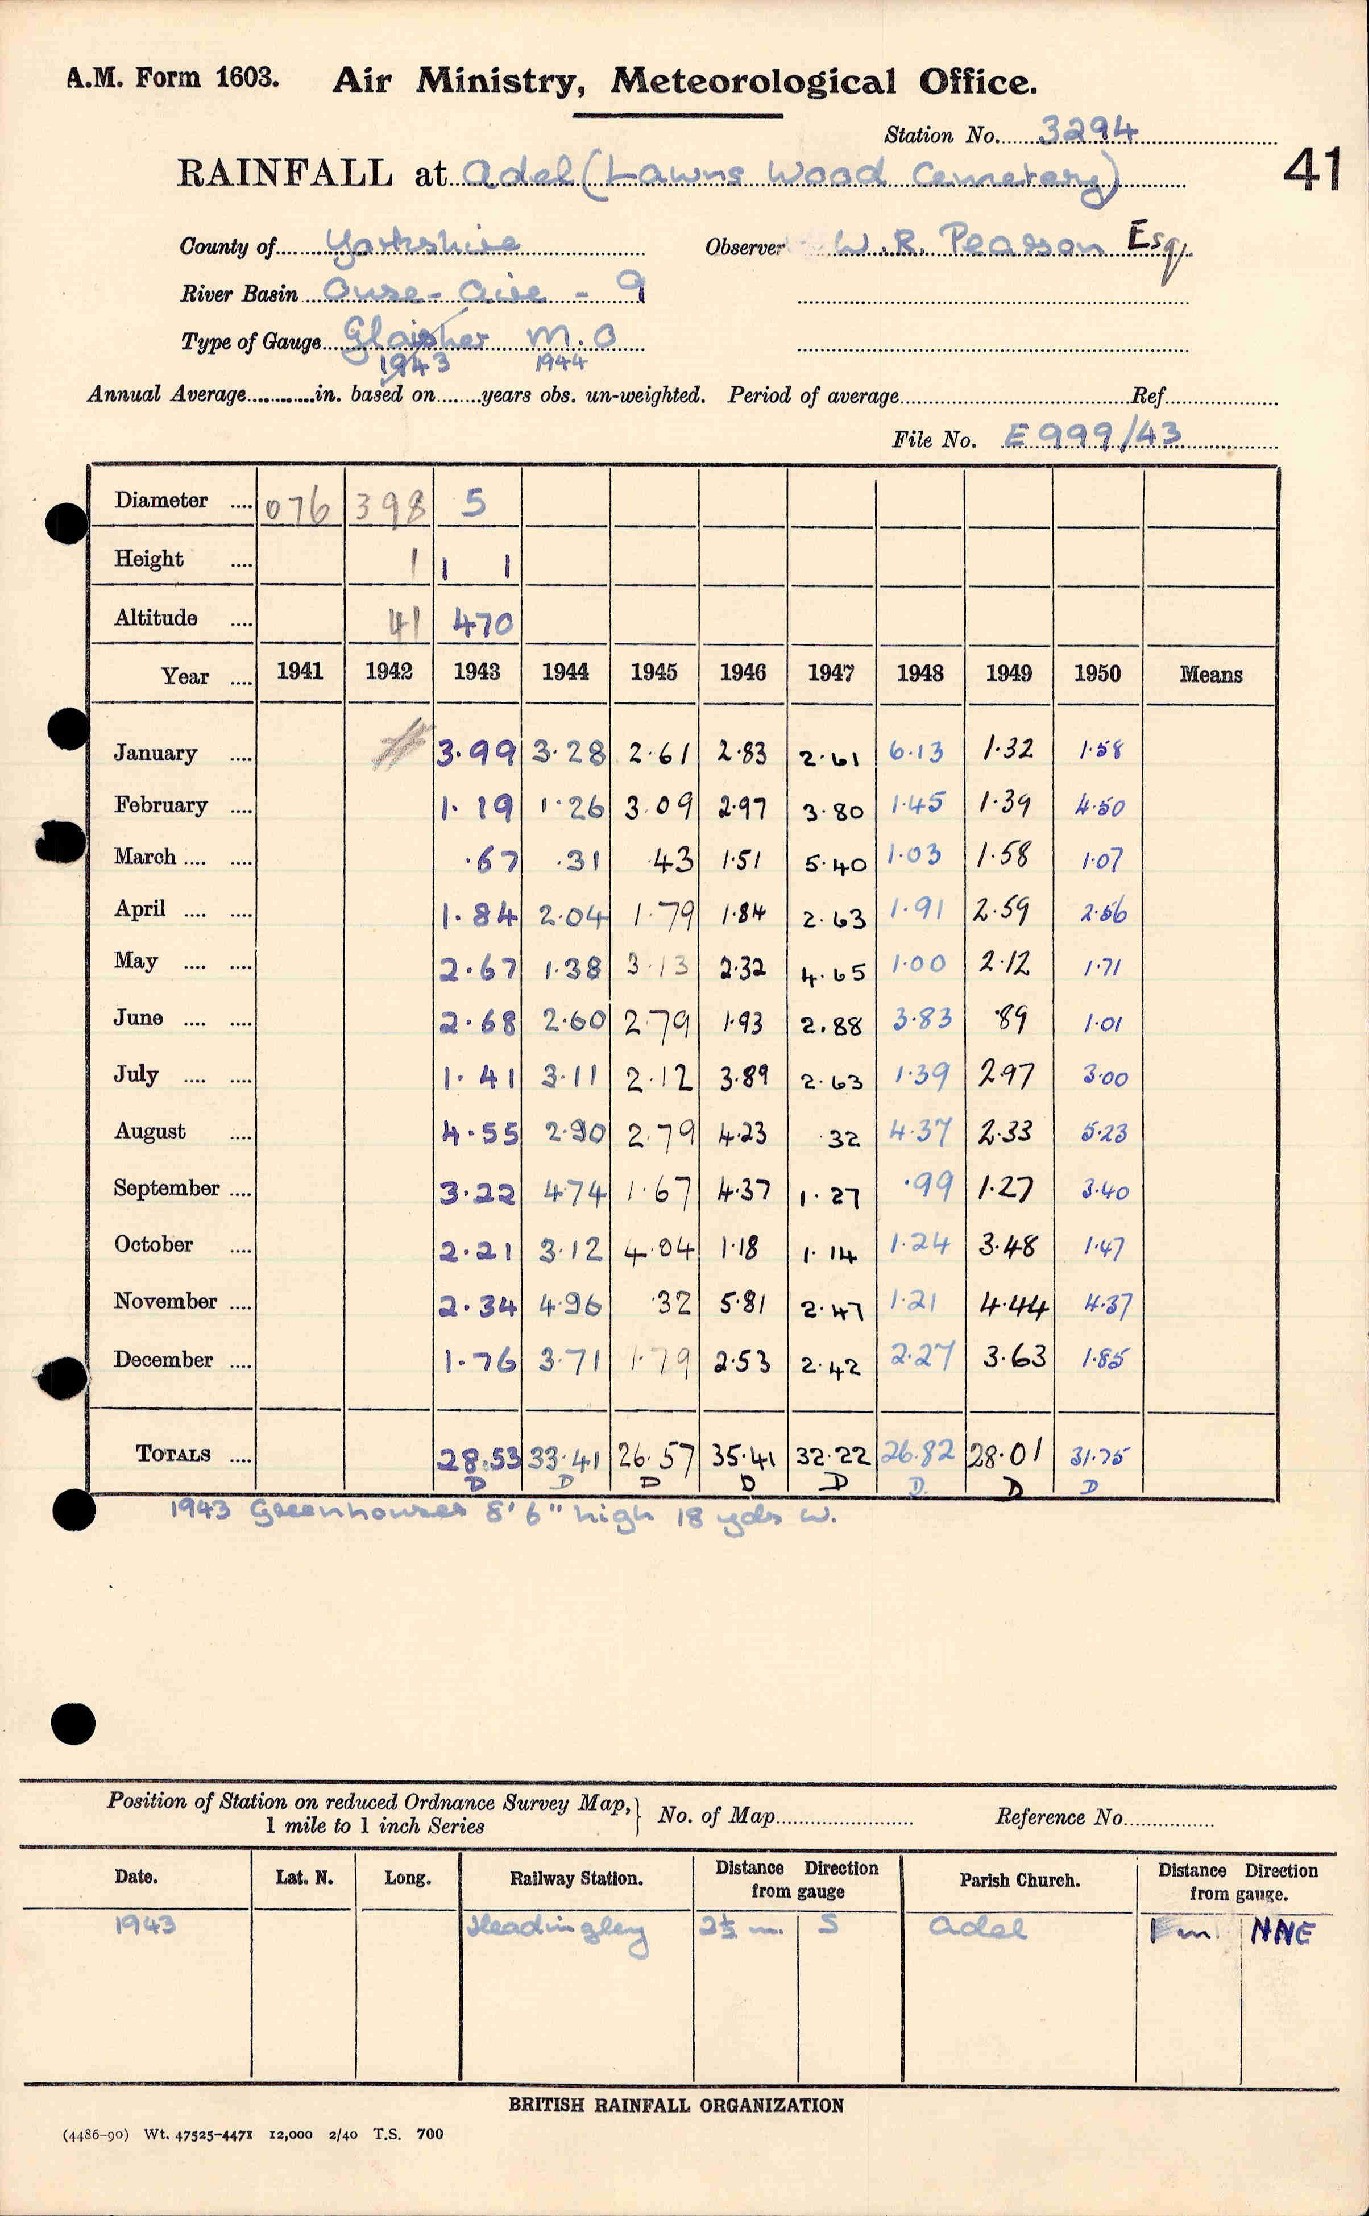 A.M. Form 1603. Air Ministry, Meteorological Office.
Station No. 3294
41
RAINFALL at Adel (Lawns Wood Cemetery)
County of Yorkshire Observer W. R. Pearson Esq.
River Basin Ouse - Aire - 9
Type of Gauge Glaisher M.O
1943 1944
Annual Average in. based on years obs. un-weighted. Period of average Ref.
File No. E999/43
Diameter .... 076 398 5
Height .... 1 1 1
Altitude .... 41 470
Year .... 1941 1942 1943 1944 1945 1946 1947 1948 1949 1950 Means
January .... 3.99 3.28 2.61 2.83 2.61 6.13 1.32 1.58
February .... 1.19 1.26 3.09 2.97 3.80 1.45 1.39 4.50
March .... .... .67 .31 .43 1.51 5.40 1.03 1.58 1.07
April .... .... 1.84 2.04 1.79 1.84 2.63 1.91 2.59 2.56
May .... .... 2.67 1.38 3.13 2.32 4.65 1.00 2.12 1.71
June .... .... 2.68 2.60 2.79 1.93 2.88 3.83 .89 1.01
July .... .... 1.41 3.11 2.12 3.89 2.63 1.39 2.97 3.00
August .... 4.55 2.90 2.79 4.23 .32 4.37 2.33 5.23
September .... 3.22 4.74 1.67 4.37 1.27 .99 1.27 3.40
October .... 2.21 3.12 4.04 1.18 1.14 1.24 3.48 1.47
November .... 2.34 4.96 .32 5.81 2.47 1.21 4.44 4.37
December .... 1.76 3.71 1.79 2.53 2.42 2.27 3.63 1.85
TOTALS .... 28.53 33.41 26.57 35.41 32.22 26.82 28.01 31.75
D D D D D D. D D
1943 Greenhouses 8' 6" high 18 yds W.
Position of Station on reduced Ordnance Survey Map, 1 mile to 1 inch Series } No. of Map Reference No.
Date. Lat. N. Long. Railway Station. Distance Direction from gauge Parish Church. Distance Direction from gauge.
1943 Headingley 2½ m. S Adel 1 m NNE
BRITISH RAINFALL ORGANIZATION
(4486-90) Wt. 47525-4471 12,000 2/40 T.S. 700